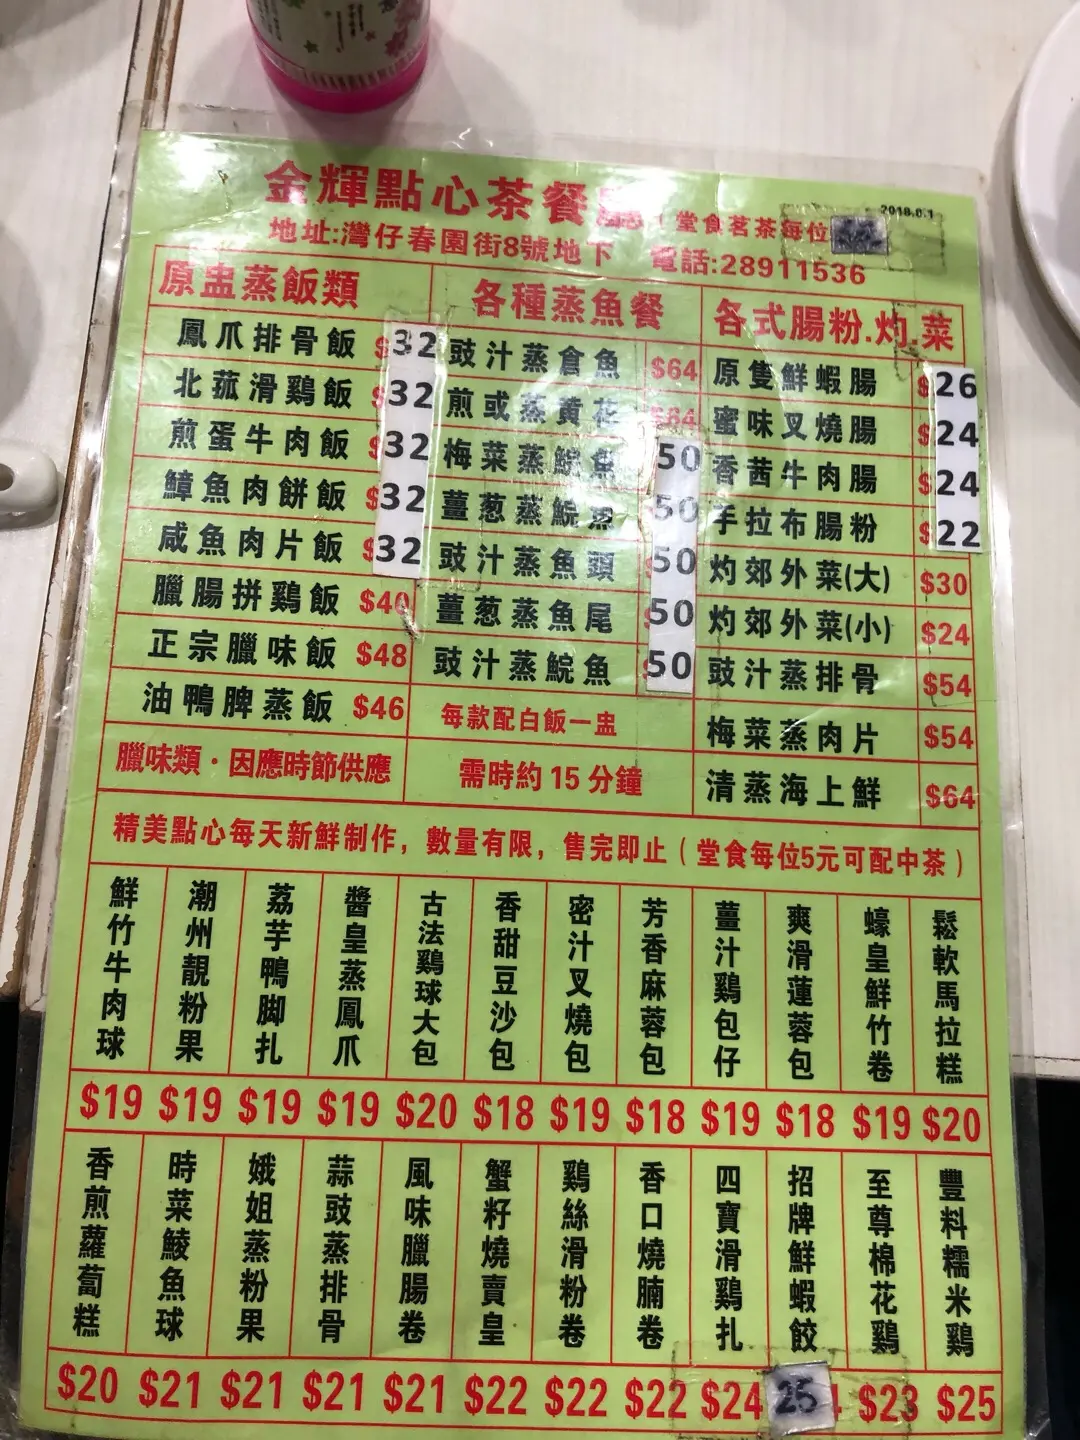 金輝點心茶餐
2018.6.1
(堂食茗茶每位
地址:灣仔春園街8號地下 電話:28911536
原盅蒸飯類
鳳爪排骨飯 $32
北菰滑鷄飯 $32
煎蛋牛肉飯 $32
鱆魚肉餅飯 $32
咸魚肉片飯 $32
臘腸拼鷄飯 $40
正宗臘味飯 $48
油鴨脾蒸飯 $46
臘味類·因應時節供應
各種蒸魚餐
豉汁蒸倉魚 $64
煎或蒸黄花 $64
梅菜蒸鯇魚 50
薑葱蒸鯇魚 50
豉汁蒸魚頭 50
薑葱蒸魚尾 50
豉汁蒸鯇魚 50
每款配白飯一盅
需時約15分鐘
各式腸粉.灼.菜
原隻鮮蝦腸 $26
蜜味叉燒腸 $24
香茜牛肉腸 $24
手拉布腸粉 $22
灼郊外菜(大) $30
灼郊外菜(小) $24
豉汁蒸排骨 $54
梅菜蒸肉片 $54
清蒸海上鮮 $64
精美點心每天新鮮制作，數量有限，售完即止（堂食每位5元可配中茶）
鮮竹牛肉球 $19
潮州靚粉果 $19
荔芋鴨脚扎 $19
醬皇蒸鳳爪 $19
古法鷄球大包 $20
香甜豆沙包 $18
密汁叉燒包 $19
芳香麻蓉包 $18
薑汁鷄包仔 $19
爽滑蓮蓉包 $18
蠔皇鮮竹卷 $19
鬆軟馬拉糕 $20
香煎蘿蔔糕 $20
時菜鯪魚球 $21
娥姐蒸粉果 $21
蒜豉蒸排骨 $21
風味臘腸卷 $21
蟹籽燒賣皇 $22
鷄絲滑粉卷 $22
香口燒腩卷 $22
四寶滑鷄扎 $24
招牌鮮蝦餃 25
至尊棉花鷄 $23
豐料糯米鷄 $25